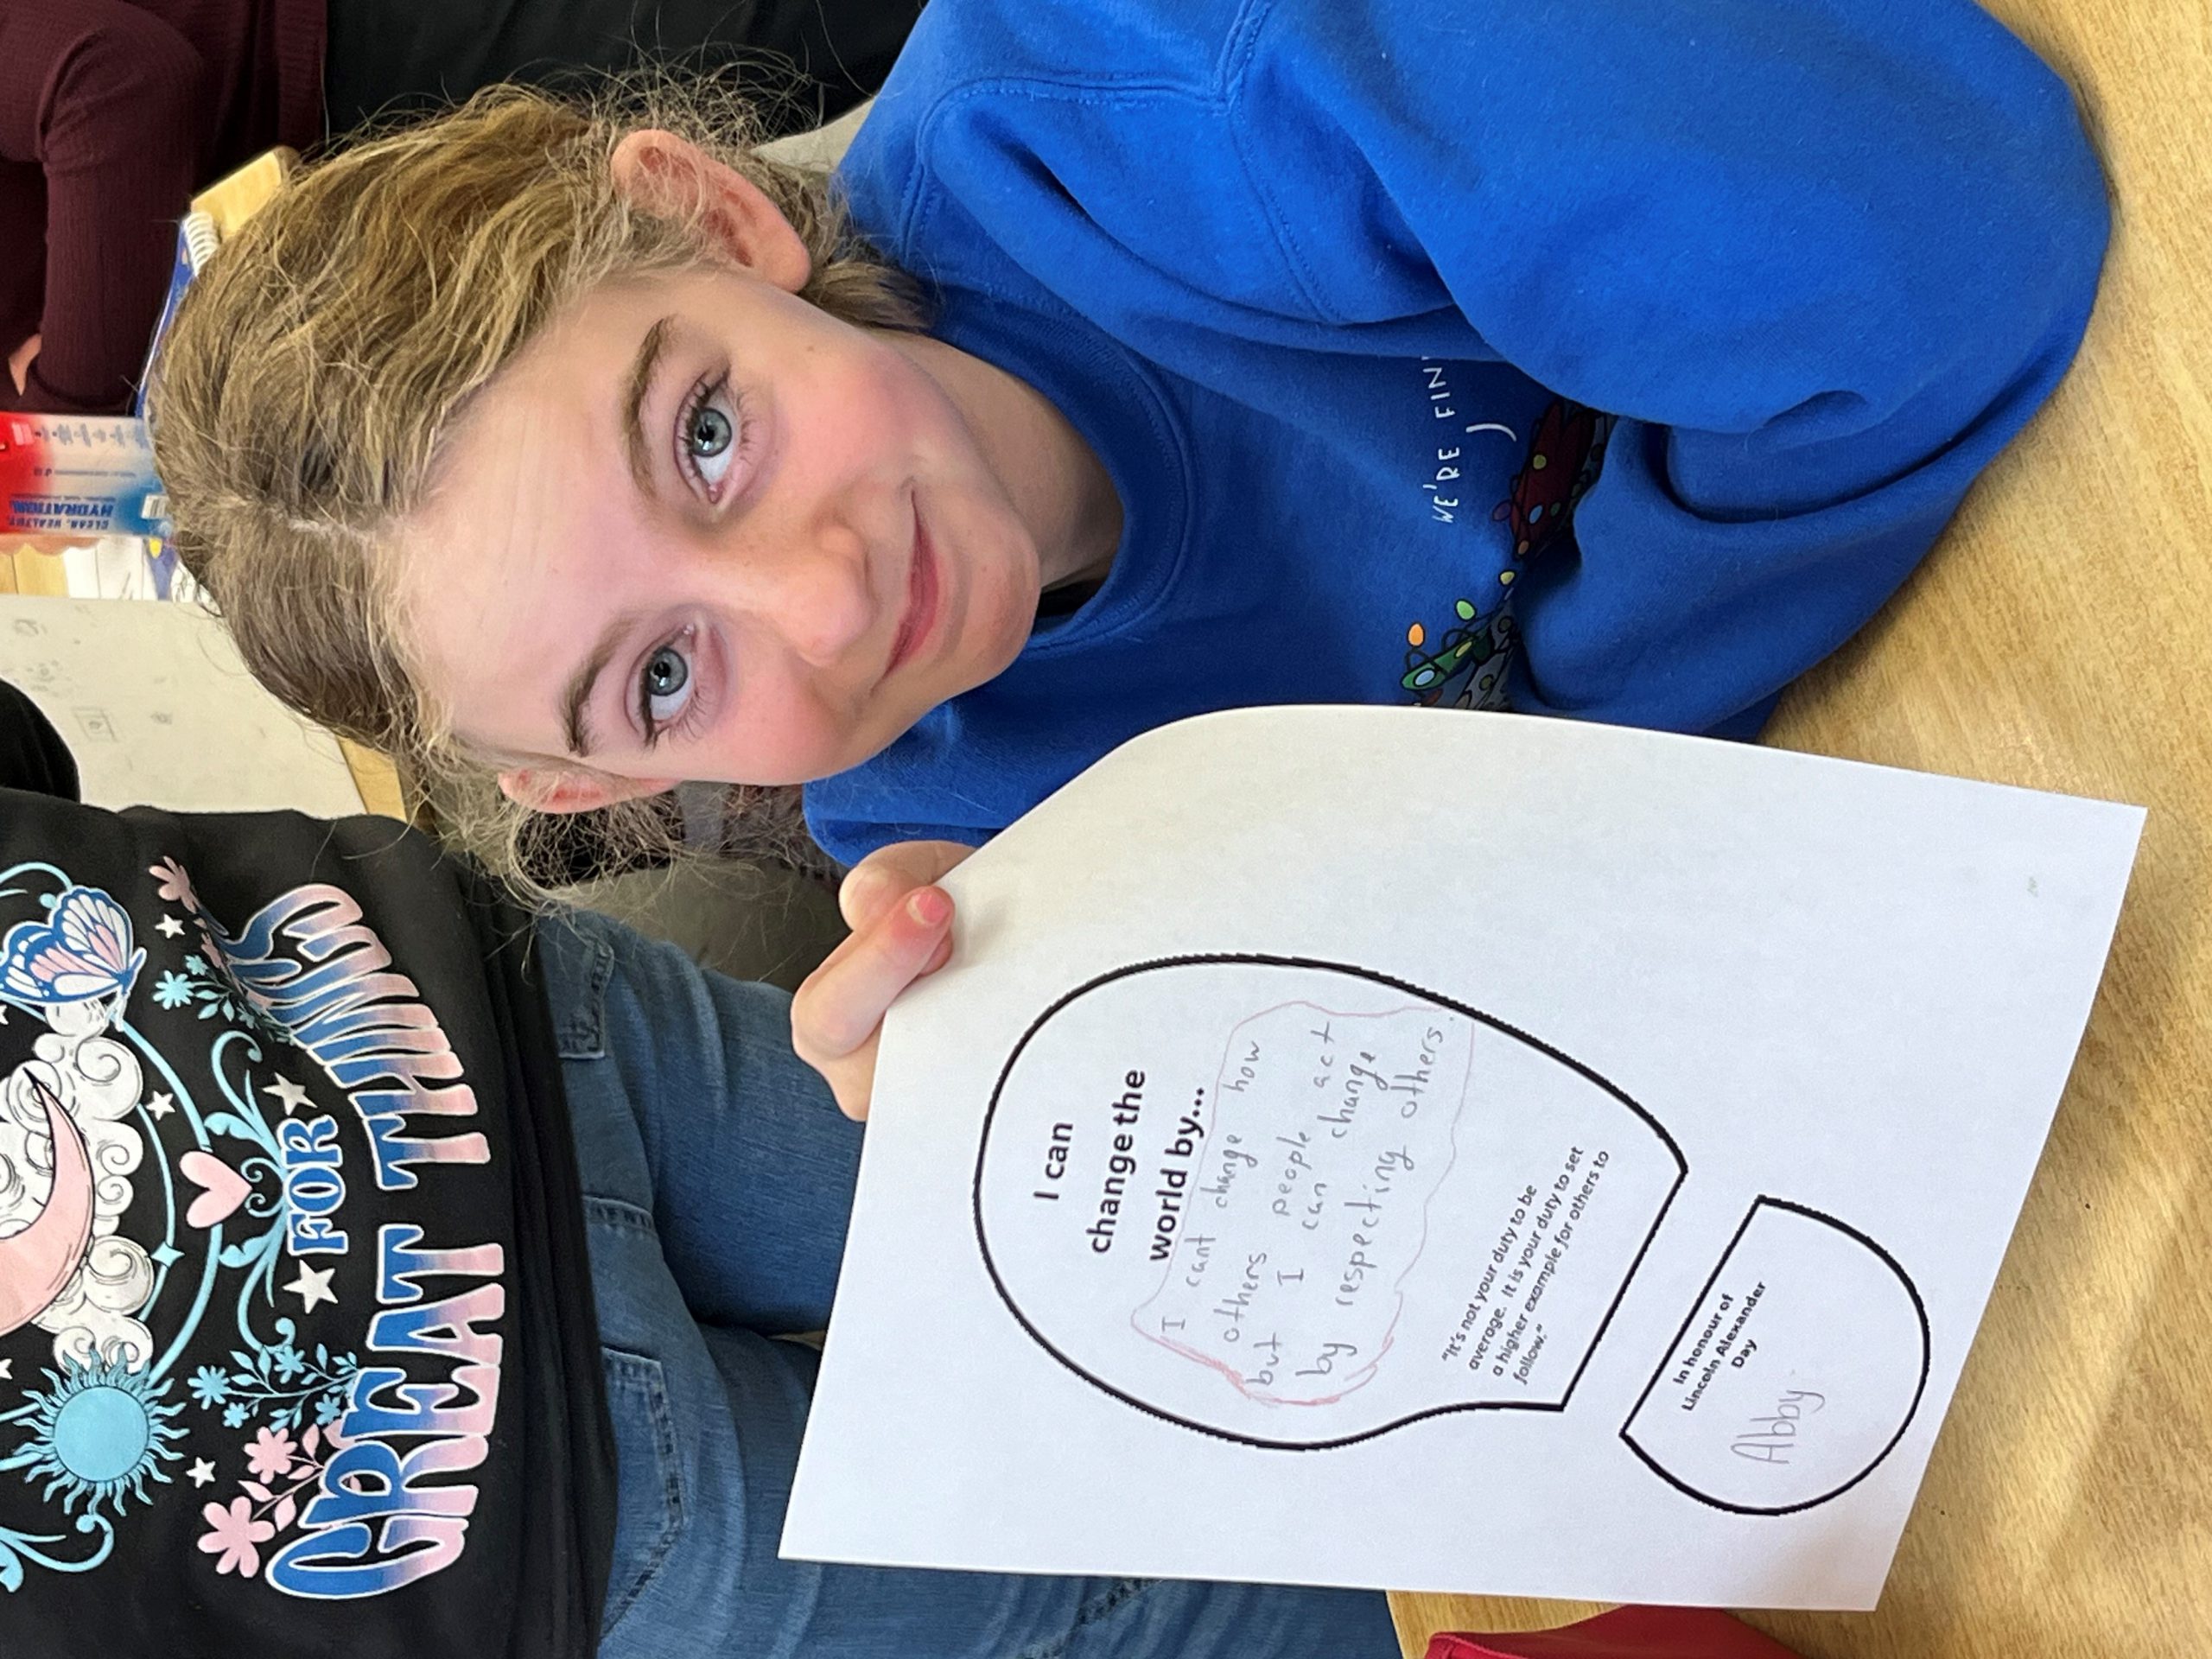 I can
change the
world by...
I cant change how
others people act
but I can change
by respecting others.
"It's not your duty to be
average. It is your duty to set
a higher example for others to
follow."
In honour of
Lincoln Alexander
Day
Abby.
WE'RE FIN
FOR
GREAT THINGS
CLEAR, HEALTHY
HYDRATION